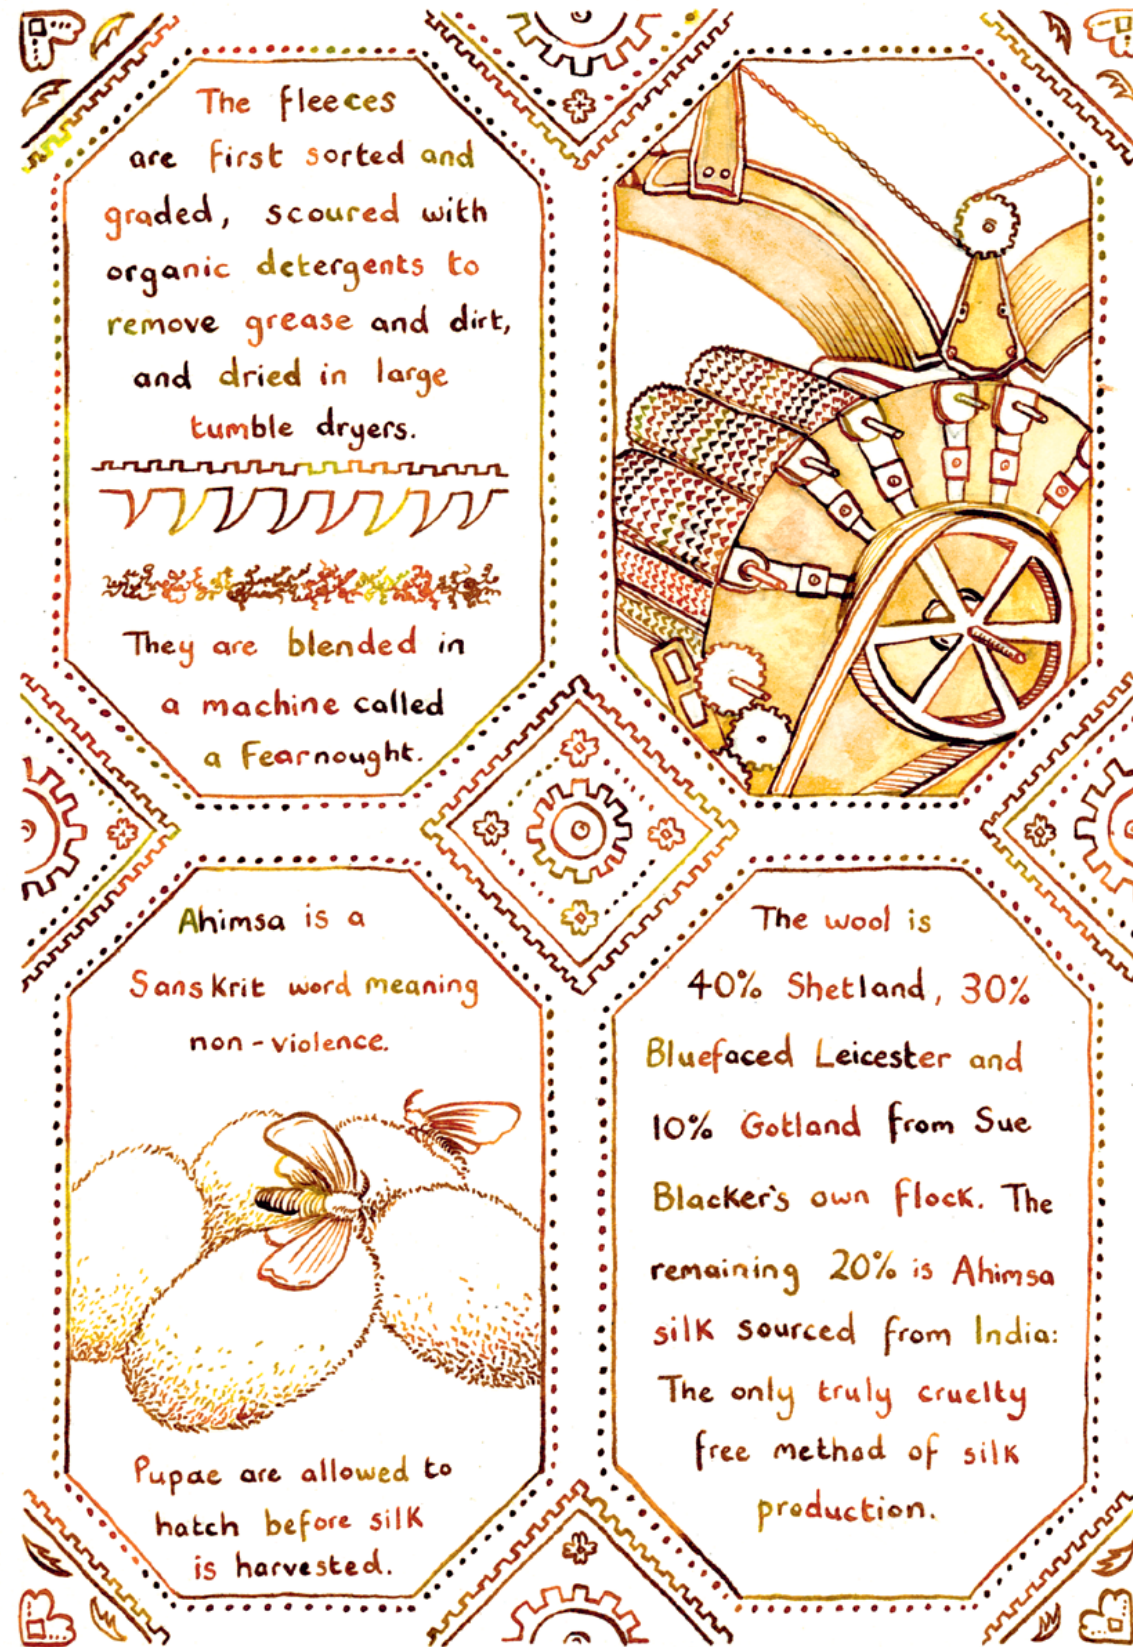 The fleeces
are first sorted and
graded, scoured with
organic detergents to
remove grease and dirt,
and dried in large
tumble dryers.
They are blended in
a machine called
a Fearnought.
Ahimsa is a
Sanskrit word meaning
non-violence.
Pupae are allowed to
hatch before silk
is harvested.
The wool is
40% Shetland, 30%
Bluefaced Leicester and
10% Gotland from Sue
Blacker's own flock. The
remaining 20% is Ahimsa
silk sourced from India:
The only truly cruelty
free method of silk
production.